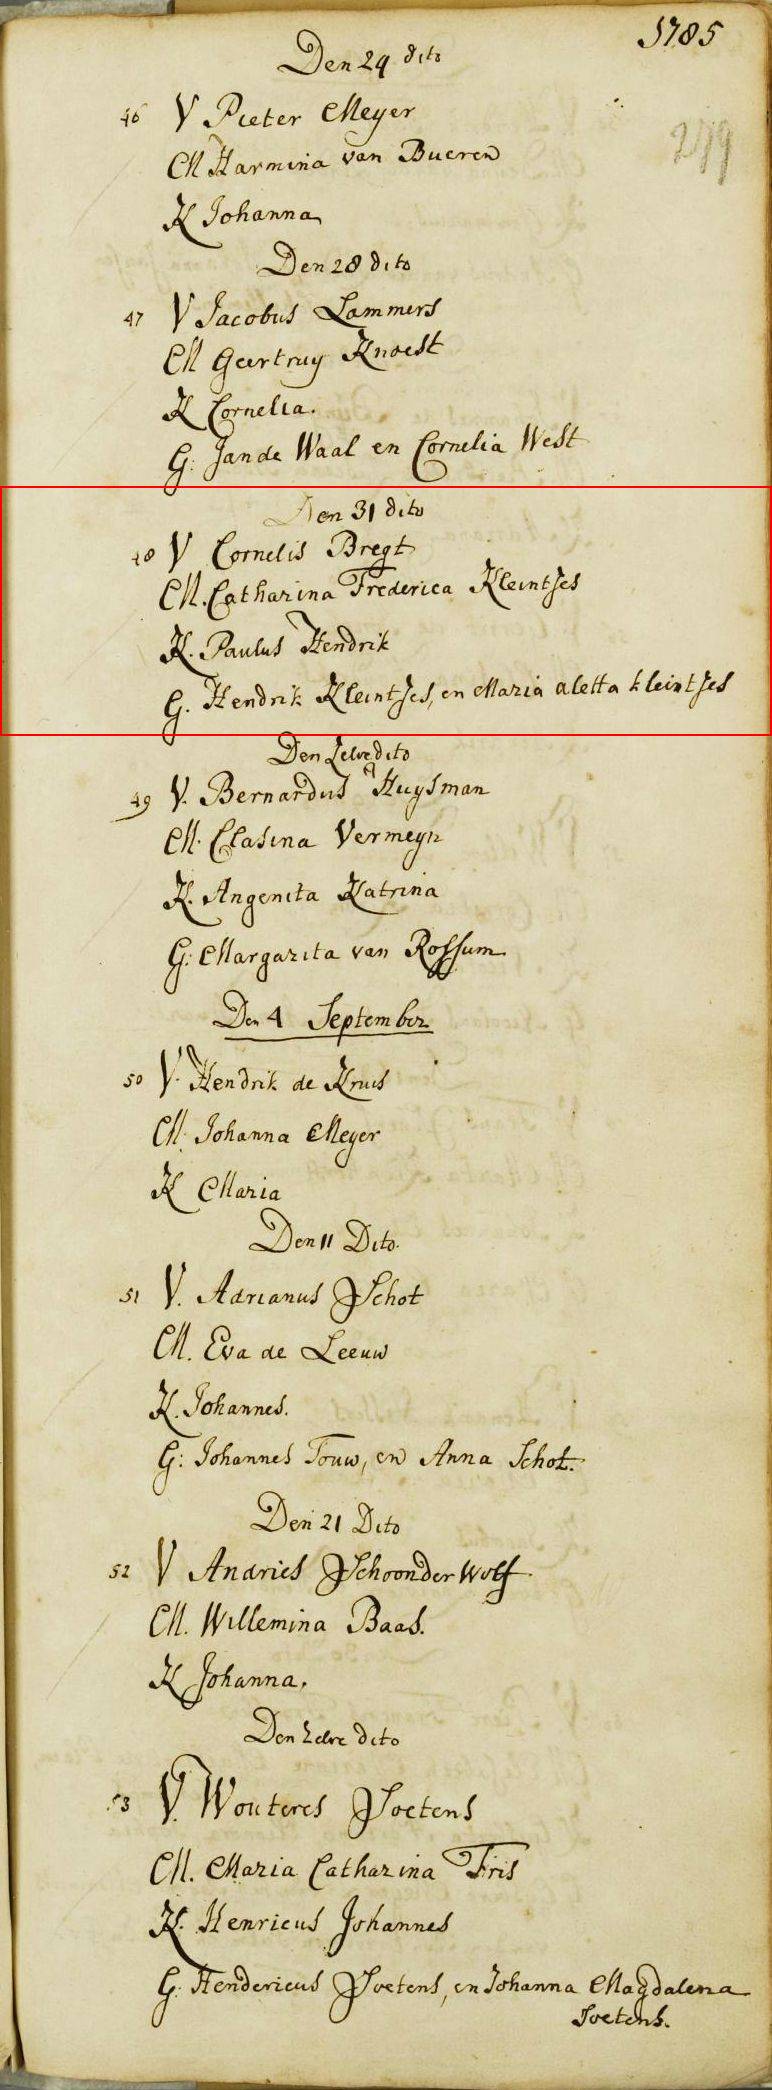 1785
Den 24 dito
249
46 V Pieter Meyer
M Harmina van Bueren
K Johanna
Den 28 dito
47 V Jacobus Lammers
M Geertruy Knoest
K Cornelia.
G: Jan de Waal en Cornelia West
Den 31 dito
48 V Cornelis Bregt
M. Catharina Frederica Kleintjes
K. Paulus Hendrik
G. Hendrik Kleintjes, en Maria aletta kleintjes
Den Zelve dito
49 V. Bernardus Huysman
M. Clasina Vermeyn
K. Angenita Katrina
G: Margarita van Rossum
Den 4 September
50 V. Hendrik de Kruis
M: Johanna Meyer
K Maria
Den 11 Dito.
51 V. Adrianus Schot
M. Eva de Leeuw
K. Johannes.
G: Johannes Touw, en Anna Schot.
Den 21 Dito
52 V Andries Schoonderwolf
M. Willemina Baas.
K Johanna.
Den Zelve dito
53 V. Wouteres Soetens
M. Maria Catharina Fris
K. Henricus Johannes
G: Hendericus Soetens, en Johanna Magdalena
Soetens.